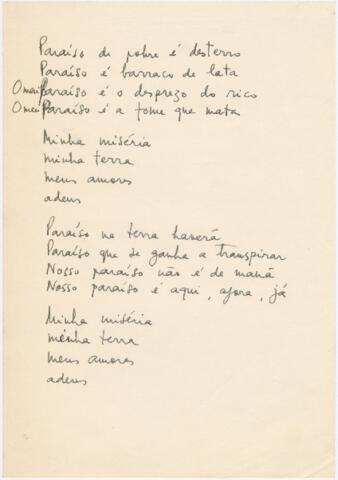 Paraíso de pobre é desterro
Paraíso é barraco de lata
O meu Paraíso é o desprezo do rico
O meu Paraíso é a fome que mata
Minha miséria
minha terra
meus amores
adeus
Paraíso na terra haverá
Paraíso que se ganha a transpirar
Nosso paraíso não é de maná
Nosso paraíso é aqui, agora, já
Minha miséria
minha terra
meus amores
adeus